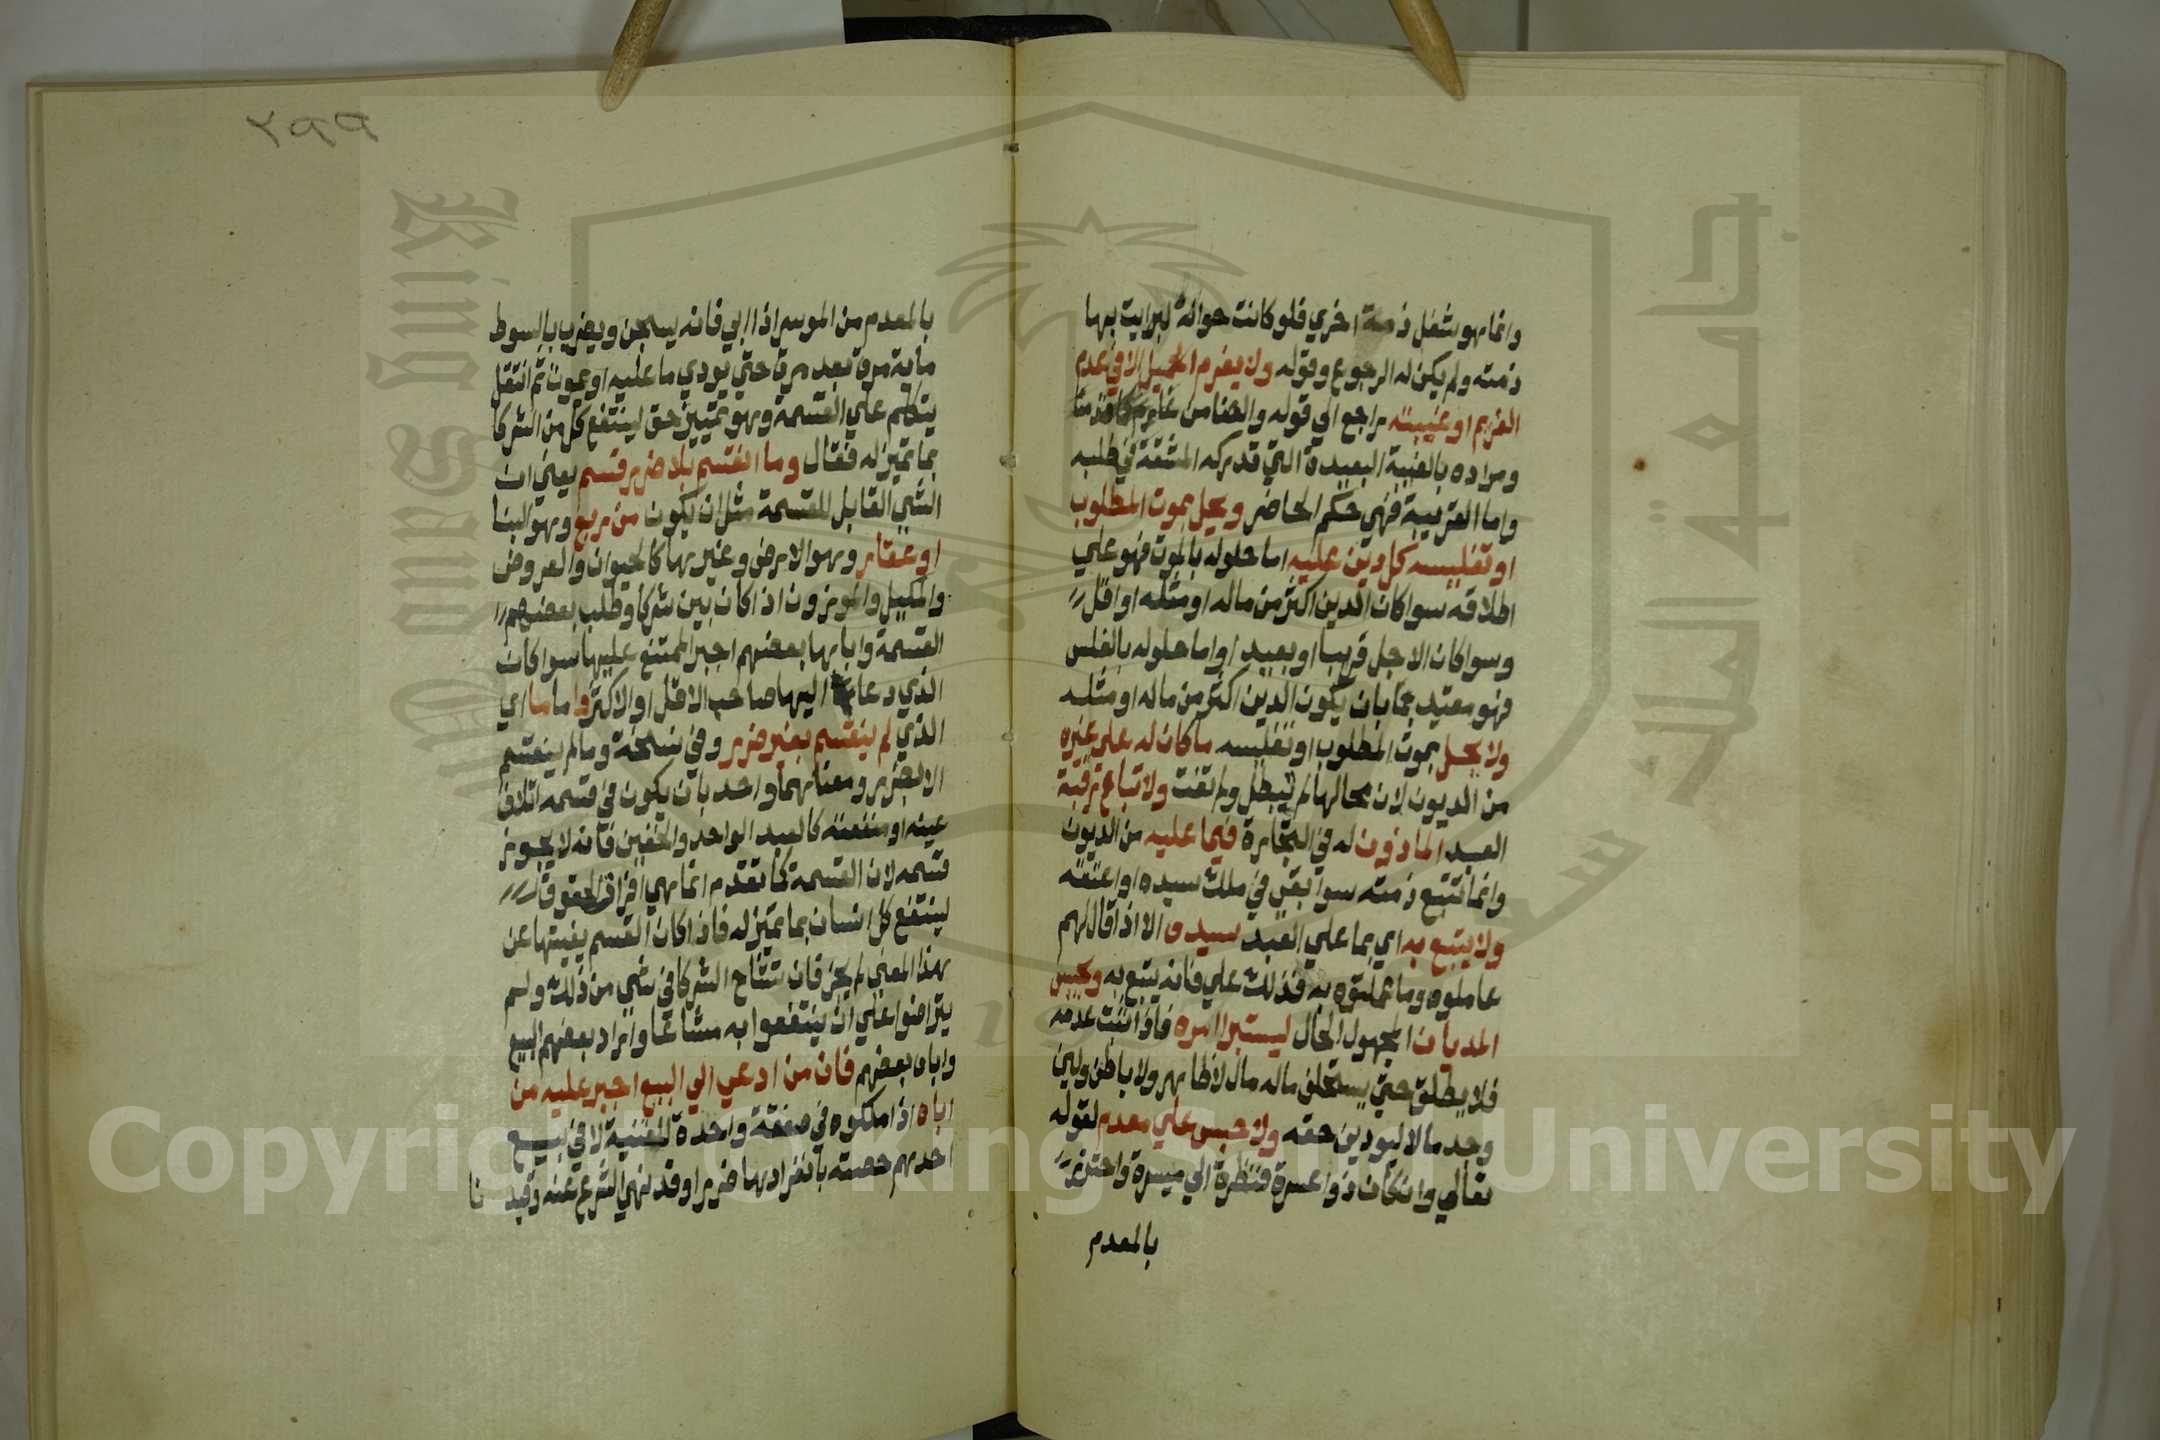 وانما هو شغل ذمة اخري فلو كانت حوالة لبرايت بها
ذمته ولم يكن له الرجوع وقوله ولا يغرم الحميل الا في عدم
الغريم او غيبته راجع الي قوله والضامن غارم كما قدمنا
ومراده بالغيبة البعيدة التي تدركه المشقة في طلبه
واما القريبة فهي حكم الحاضر ويحل بموت المطلوب
او تفليسه كل دين عليه اما حلوله بالموت فهو علي
اطلاقه سوا كان الدين اكثر من ماله او مثله او اقل
وسوا كان الاجل قريبا او بعيدا واما حلوله بالفلس
فهو مقيد بما بان يكون الدين اكثر من ماله او مثله
ولا يحل بموت المطلوب او تفليسه ما كان له علي غيره
من الديون لان محالها لم يبطل ولم تفت ولا تباع رقبة
العبد الماذون له في التجارة فيما عليه من الديون
وانما تتبع ذمته سوا بقي في ملك سيده او اعتقه
ولا يتبع به اي بما علي العبد سيده الا اذا قال لهم
عاملوه وما عملتوه به فذلك علي فانه يتبع به ويحبس
المديان المجهول الحال ليستبرا امره فاذا اثبت عدمه
فلا يطلق حتي يستحلف ماله مال لا ظاهر ولا باطن ولين
وجد مالا ليودين حقه ولا حبس علي معدم لقوله
تعالي وان كان ذوا عسرة فنظرة الي ميسرة واحترز
بالمعدم
٢٩٩
بالمعدم من الموسر اذا ابي فانه يسجن ويضرب بالسوط
ماية مرة بعد مرة حتي يودي ما عليه او يموت ثم انتقل
يتكلم علي القسمة وهو تمييز حق لينتفع كل من الشركا
بما تميز له فقال وما انقسم بلا ضرر قسم يعني ان
الشي القابل للقسمة مثل ان يكون من ربع وهو البنا
او عقار وهو الارض وغيرها كالحيوان والعروض
والمكيل والموزون اذا كان بين شركا وطلب بعضهم
القسمة واباها بعضهم اجبر الممتنع عليها سوا كان
الذي دعا اليها صاحب الاقل او الاكثر واما ما اي
الذي لم ينقسم بغير ضرر وفي نسخة وما لم ينقسم
الا بضرر ومعناهما واحد بان يكون في قسمه اتلاف
عينه او منفعته كالعبد الواحد والخفين فانه لا يجوز
قسمه لان القسمة كما تقدم انما هي افراز الحقوق
لينتفع كل انسان بما تميز له فاذا كان القسم يفيتها عن
هذا المعني لم يجز فان تشاح الشركا في شي من ذلك ولم
يتراضوا علي ان ينتفعوا به مشاعا واراد بعضهم البيع
واباه بعضهم فان من ادعي الي البيع اجبر عليه من
اباه اذا ملكوه في صفقة واحدة للقنية لا في بيع
احدهم حصته بانفرادها ضررا وقد نهي الشرع عنه وقيدنا